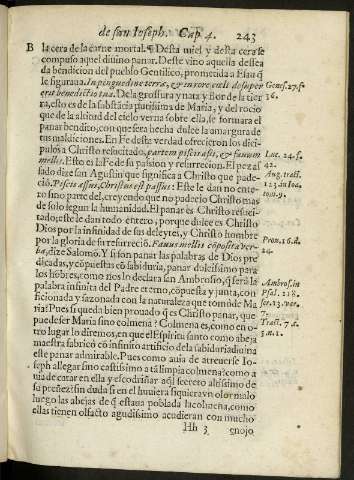 de san Ioseph. Cap. 4. 243
B la cera de la carne mortal. ¶ Desta miel y desta cera se
compuso aquel diuino panar. Deste vino aquella dessea
da bendicion del pueblo Gentilico, prometida a Esau q̃
le figuraua. In pinguedine terræ, & in rore cæli desuper
erit benedictio tua. De la grossura y nata y flor de la tier
ra, esto es de la sustãcia purissima de Maria, y del rocio
que de la altitud del cielo verna sobre ella, se formara el
panar bendito, con que sera hecha dulce la amargura de
tus maldiciones. En Fe desta verdad ofrecieron los dici-
pulos a Christo resuscitado, partem piscis assi, & fauum
mellis. Esto es la Fe de su passion y resurreccion. El pez as
sado dize san Agustin que significa a Christo que pade-
scio: Piscis assus, Christus est passus: Este le dan no ente-
ro sino parte del, creyendo que no padecio Christo mas
de solo segun la humanidad. El panar es Christo resuci-
tado; este le dan todo entero, porque dulce es Christo
Dios por la infinidad de sus deleytes, y Christo hombre
por la gloria de su resurreciõ. Fauus mellis cõposita ver-
ba, dize Salomõ. Y si son panar las palabras de Dios pre
dicadas, y cõpuestas cõ sabiduria, panar dulcissimo para
los hõbres, como nos lo declara san Ambrosio, q̃ sera la
palabra infinita del Padre eterno, cõpuesta y junta, con
ficionada y sazonada con la naturaleza que tomò de Ma
ria? Pues si queda bien prouado q̃ es Christo panar, que
puede ser Maria sino colmena? Colmena es, como en o-
tro lugar lo diremos, en que el Espiritu santo como abeja
maestra fabricò cõ infinito artificio de la sabiduria diuina
este panar admirable. Pues como auia de atreuerse Io-
seph allegar sino castissimo a tã limpia colmena? como a
uia de catar en ella y escodriñar aq̃l secreto altissimo de
su preñez? sin duda si en el huuiera siquiera vn olor malo
luego las abejas de q̃ estaua poblada la colmena, como
ellas tienen olfacto agudissimo acudieran con mucho
Hh 3 enojo
Genes. 27. &
36.
Luc. 24. f.
42.
Aug. tract.
123. in Ioã.
tom. 9.
Prou. 16. d.
24.
Ambros. in
Psal. 118.
ser. 13. ver.
7.
Tract. 7. d.